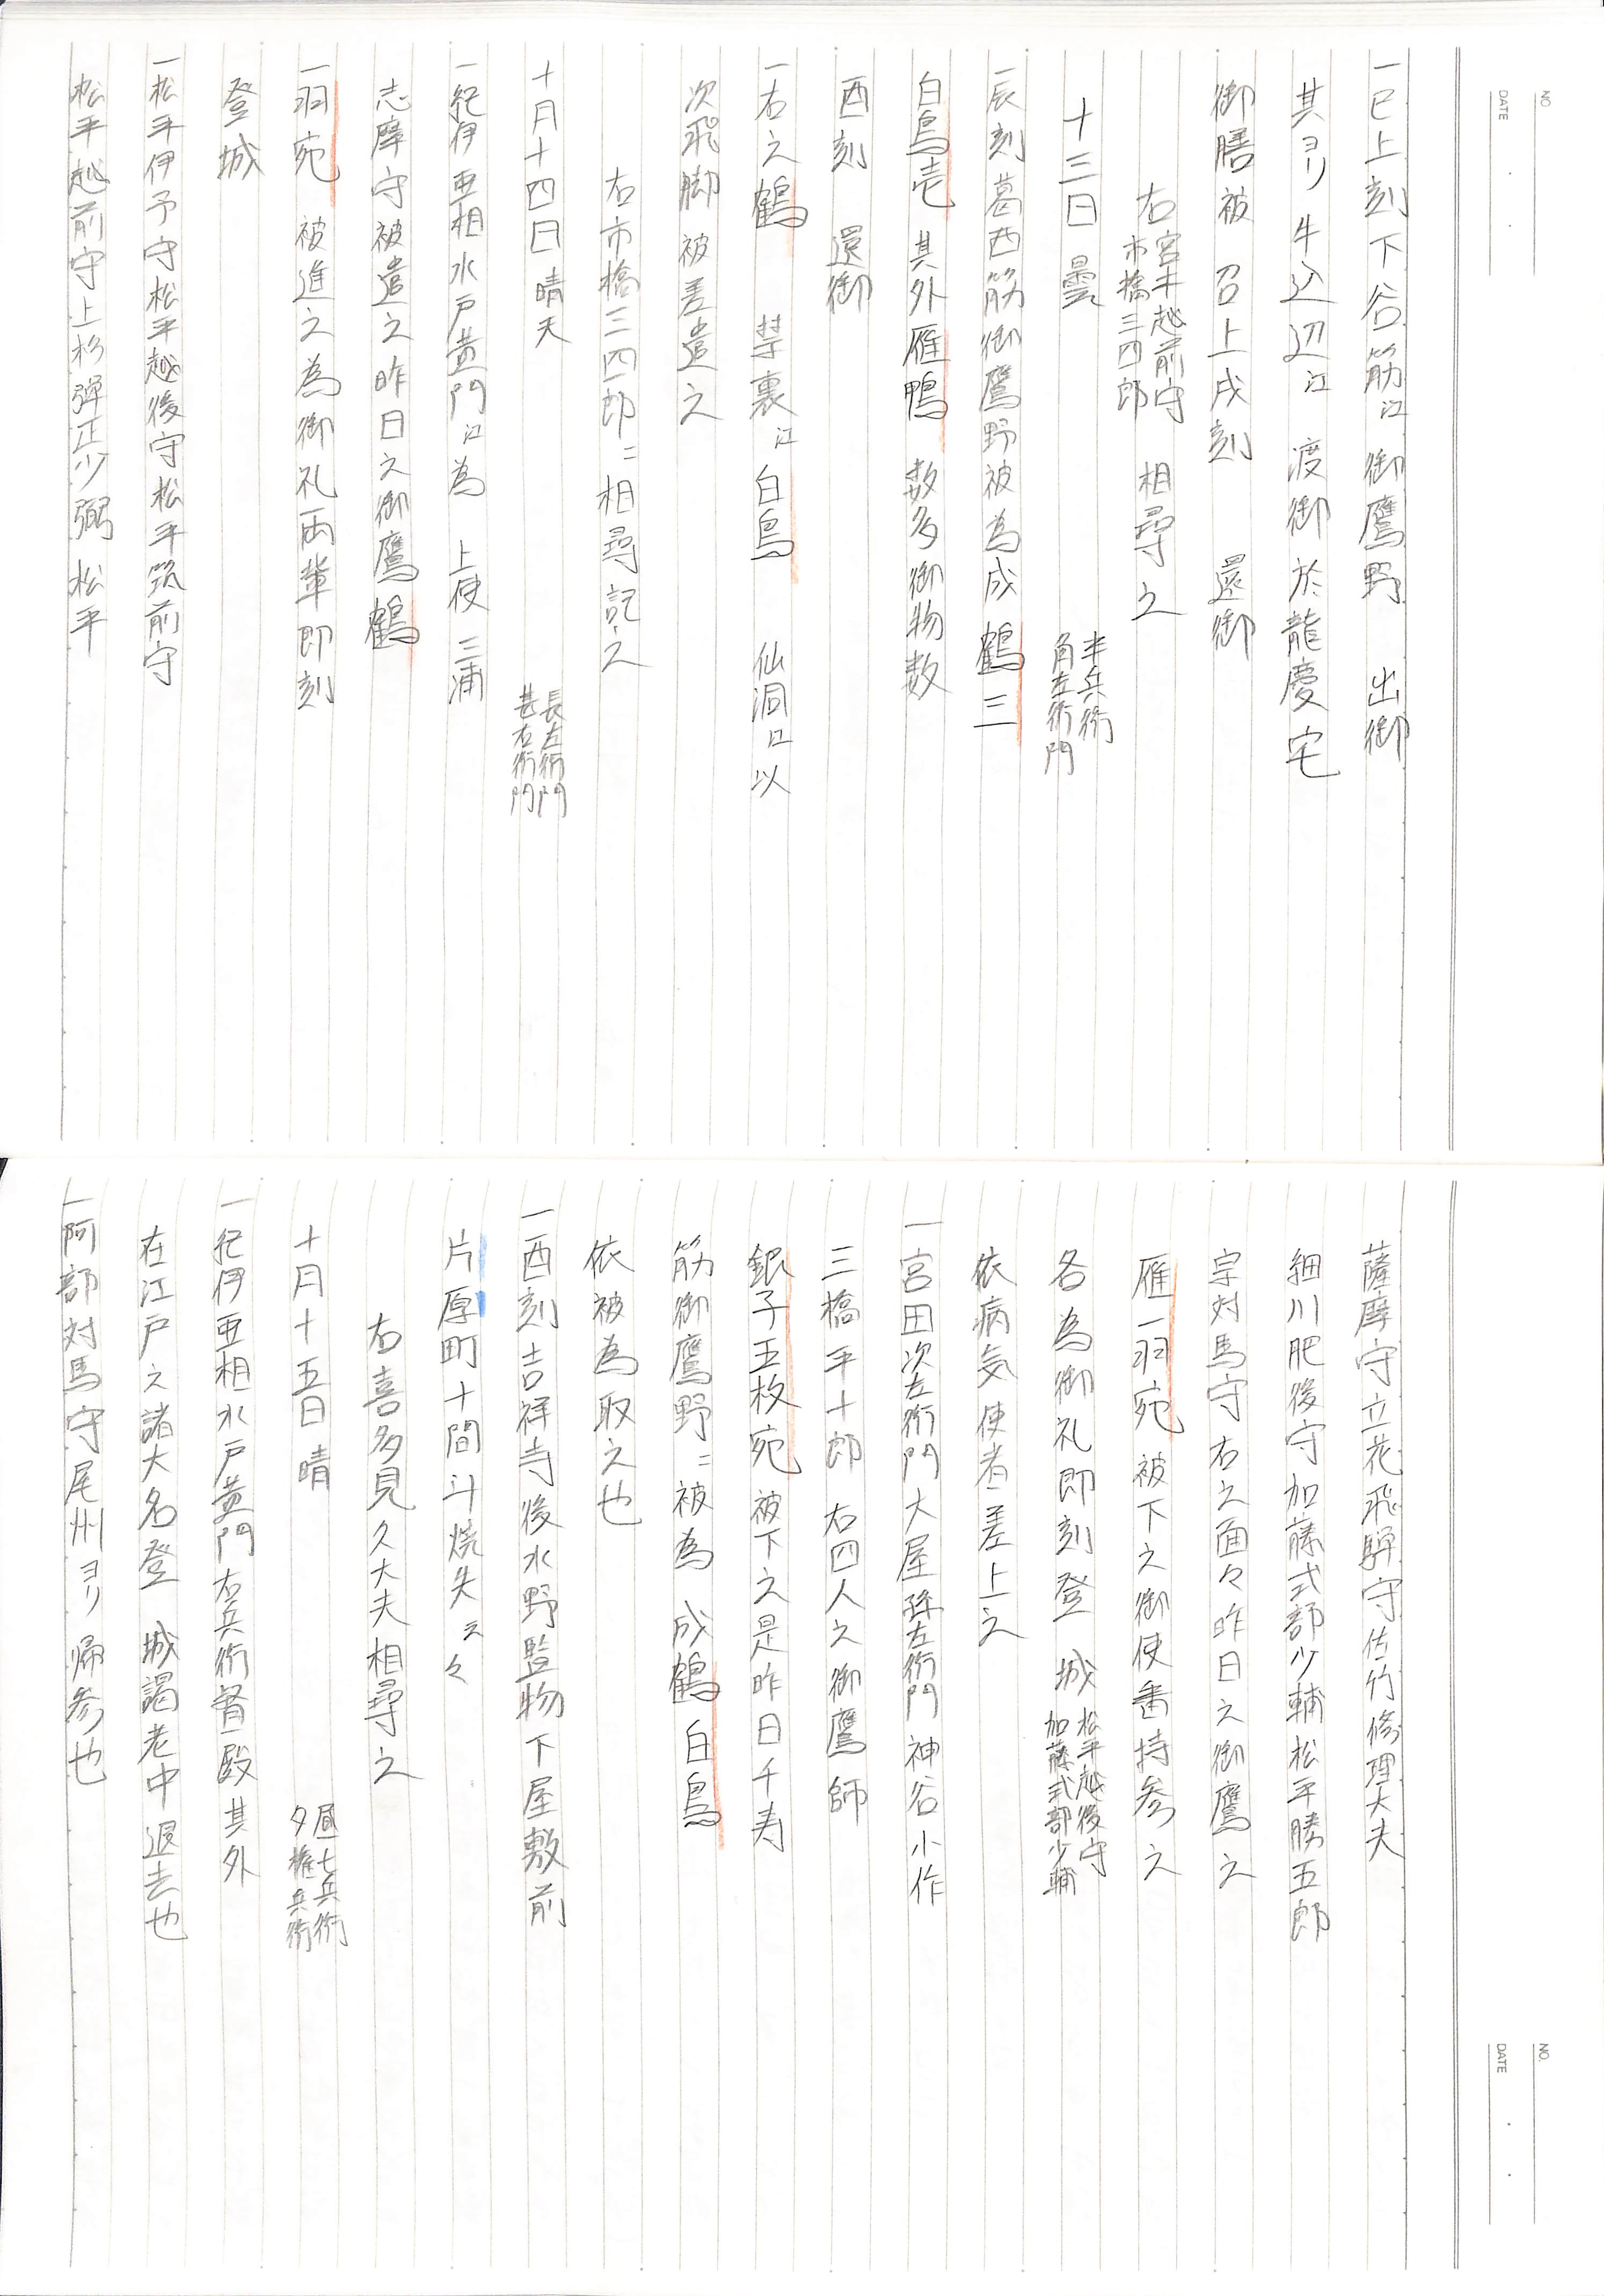 NO.
DATE
一巳上刻下谷筋江御鷹野 出御
其ヨリ牛込辺江 渡御於龍慶宅
御膳被 召上戌刻 還御
右宮木越前守
市橋三四郎 相尋之
十三日 曇 半兵衛
角左衛門
一辰刻葛西筋御鷹野被為成鶴三
白鳥壱 其外雁鴨 数多御物数
酉刻 還御
一右之鶴 禁裏江白鳥 仙洞江以
次飛脚被差遣之
右市橋三四郎ニ相尋記之
十月十四日 晴天 長左衛門
甚右衛門
一紀伊亜相水戸黄門江為 上使三浦
志摩守被遣之昨日之御鷹鶴
一羽宛 被進之為御礼両輩即刻
登城
一松平伊予守松平越後守松平筑前守
松平越前守上杉弾正少弼松平
NO.
DATE
薩摩守立花飛騨守佐竹修理大夫
細川肥後守加藤式部少輔松平勝五郎
宗対馬守右之面々昨日之御鷹之
雁一羽宛被下之御使番持参之
各為御礼即刻登 城 松平越後守
加藤式部少輔
依病気使者差上之
一宮田次左衛門大屋孫左衛門神谷小作
三橋平十郎 右四人之御鷹師
銀子五枚宛被下之是昨日千寿
筋御鷹野ニ被為 成鶴白鳥
依被為取之也
一酉刻吉祥寺後水野監物下屋敷前
片原町十間斗焼失云々
右喜多見久大夫相尋之
十月十五日 晴 昼七兵衛
夕権兵衛
一紀伊亜相水戸黄門右兵衛督殿其外
在江戸之諸大名登 城謁老中退去也
一阿部対馬守尾州ヨリ帰参也